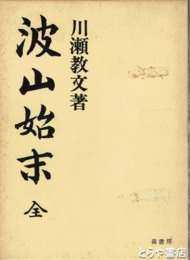 川瀬教文著
波山始末 全
書房
とらや書店